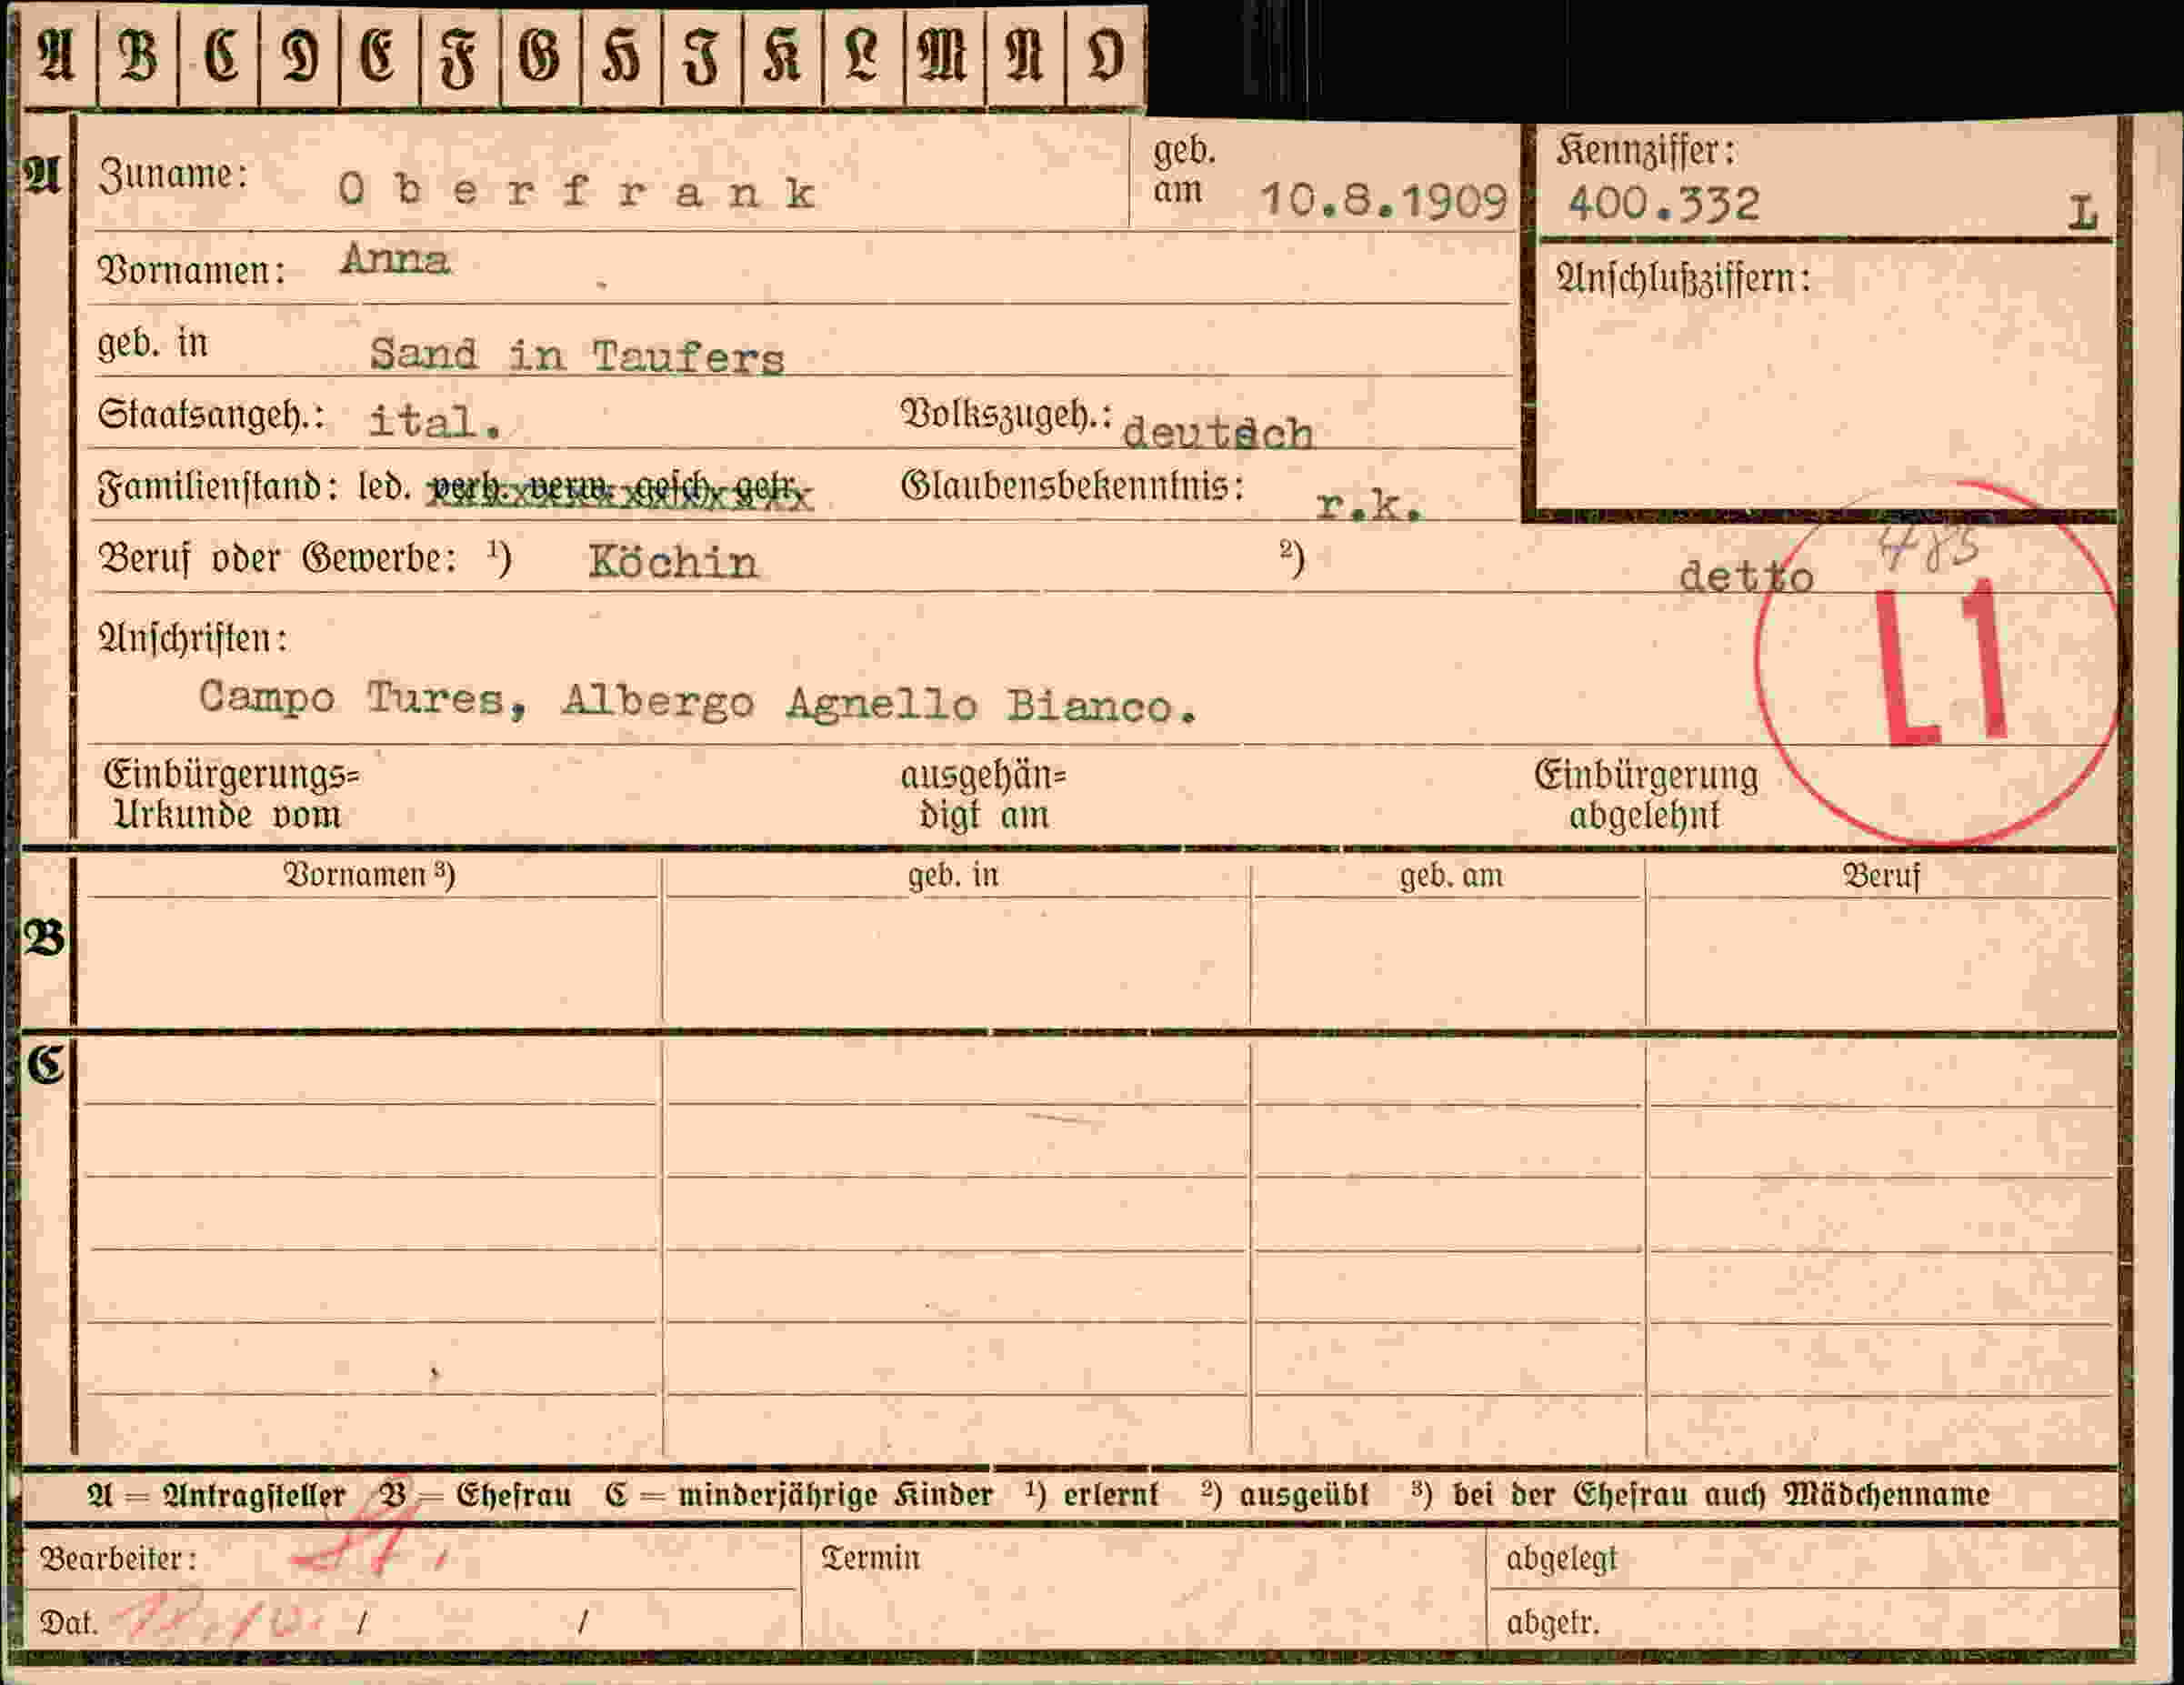 A B C D E F G H I K L M N O
A Zuname: Oberfrank geb. am 10.8.1909 Kennziffer: 400.332 L
Vornamen: Anna Anschlußziffern:
geb. in Sand in Taufers
Staatsangeh.: ital. Volkszugeh.: deutsch
Familienstand: led. verh. verw. gesch. getr. Glaubensbekenntnis: r.k.
Beruf oder Gewerbe: ¹) Köchin ²) detto 485
L1
Anschriften:
Campo Tures, Albergo Agnello Bianco.
Einbürgerungs= ausgehän= Einbürgerung
Urkunde vom digt am abgelehnt
Vornamen ³) geb. in geb. am Beruf
B
C
A = Antragsteller B = Ehefrau C = minderjährige Kinder ¹) erlernt ²) ausgeübt ³) bei der Ehefrau auch Mädchenname
Bearbeiter: Termin abgelegt
Dat. / / abgetr.